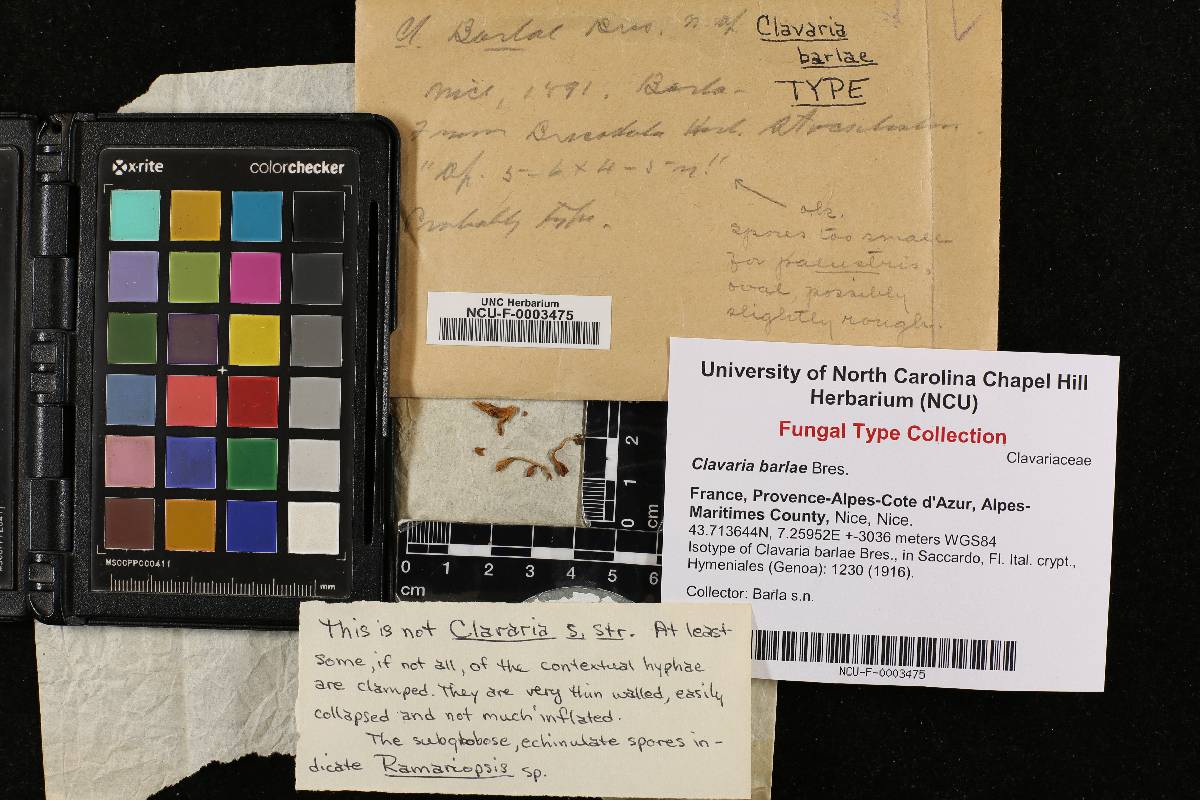 Cl. Barlae Bres. n. sp.
Clavaria
barlae
TYPE
Nice, 1891. Barla-
From Bresadola Herb. at Stockholm.
"Sp. 5-6 x 4-5 m!"
Probably type.
ok.
spores too small
for palustris,
oval, possibly
slightly rough.
x·rite colorchecker
MSCCPPC00411
mm
UNC Herbarium
NCU-F-0003475
2
1
0
cm
0 1 2 3 4 5 6
cm
University of North Carolina Chapel Hill
Herbarium (NCU)
Fungal Type Collection
Clavariaceae
Clavaria barlae Bres.
France, Provence-Alpes-Cote d'Azur, Alpes-
Maritimes County, Nice, Nice.
43.713644N, 7.25952E +-3036 meters WGS84
Isotype of Clavaria barlae Bres., in Saccardo, Fl. Ital. crypt.,
Hymeniales (Genoa): 1230 (1916).
Collector: Barla s.n.
NCU-F-0003475
This is not Clavaria s. str. At least
some, if not all, of the contextual hyphae
are clamped. They are very thin walled, easily
collapsed and not much inflated.
The subglobose, echinulate spores in-
dicate Ramariopsis sp.